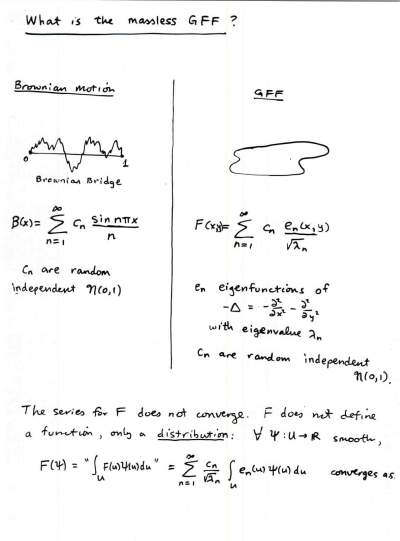 What is the massless GFF ?
Brownian motion
0 1
Brownian Bridge
B(x) = ∑_{n=1}^{∞} c_n \frac{\sin nπx}{n}
C_n are random
independent η(0,1)
GFF
F(x,y) = ∑_{n=1}^{∞} c_n \frac{e_n(x,y)}{\sqrt{λ_n}}
e_n eigenfunctions of
-Δ = -\frac{∂^2}{∂x^2} - \frac{∂^2}{∂y^2}
with eigenvalue λ_n
C_n are random independent
η(0,1).
The series for F does not converge. F does not define
a function, only a distribution: ∀ Ψ : U → R smooth,
F(Ψ) = "∫_U F(u)Ψ(u)du" = ∑_{n=1}^{∞} \frac{c_n}{\sqrt{λ_n}} ∫_U e_n(u) Ψ(u) du converges as.